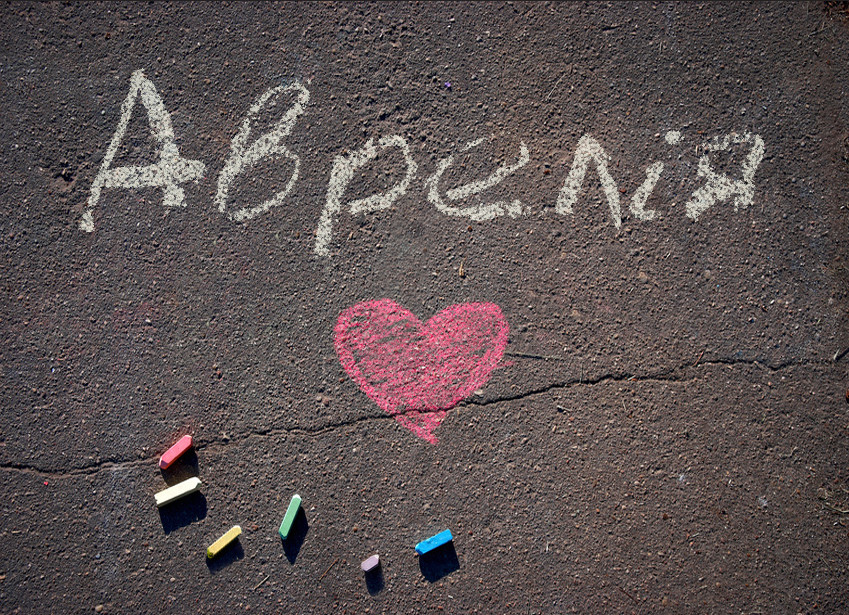 Аврелія